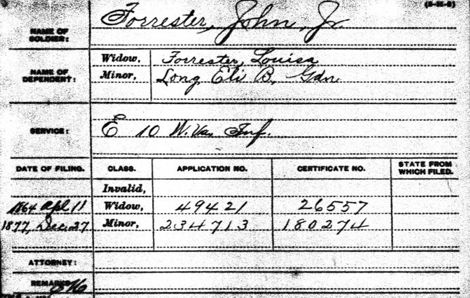 (3-111-3)
NAME OF SOLDIER: Forrester, John, Jr.
NAME OF DEPENDENT:
Widow, Forrester, Louisa
Minor, Long Eli B, Gdn.
SERVICE: E 10 W. Va. Inf.
DATE OF FILING. CLASS. APPLICATION NO. CERTIFICATE NO. STATE FROM WHICH FILED.
Invalid,
1864 Apl 11 Widow, 49421 26557
1877, Dec. 27 Minor, 234713 180274
ATTORNEY:
REMARKS: